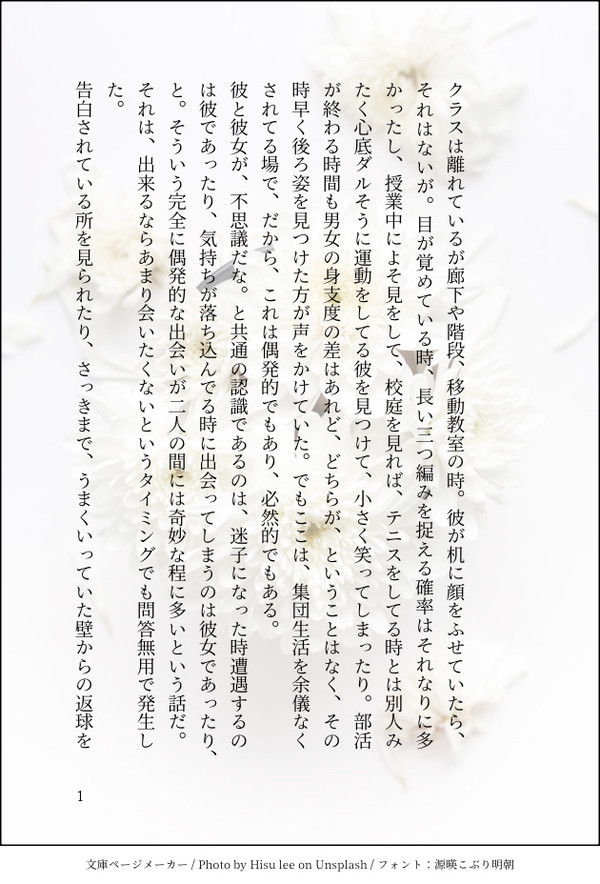 クラスは離れているが廊下や階段、移動教室の時。彼が机に顔をふせていたら、
それはないが。目が覚めている時、長い三つ編みを捉える確率はそれなりに多
かったし、授業中によそ見をして、校庭を見れば、テニスをしてる時とは別人み
たく心底ダルそうに運動をしてる彼を見つけて、小さく笑ってしまったり。部活
が終わる時間も男女の身支度の差はあれど、どちらが、ということはなく、その
時早く後ろ姿を見つけた方が声をかけていた。でもここは、集団生活を余儀なく
されてる場で、だから、これは偶発的でもあり、必然的でもある。
彼と彼女が、不思議だな。と共通の認識であるのは、迷子になった時遭遇するの
は彼であったり、気持ちが落ち込んでる時に出会ってしまうのは彼女であったり、
と。そういう完全に偶発的な出会いが二人の間には奇妙な程に多いという話だ。
それは、出来るならあまり会いたくないというタイミングでも問答無用で発生し
た。
告白されている所を見られたり、さっきまで、うまくいっていた壁からの返球を
1
文庫ページメーカー / Photo by Hisu lee on Unsplash / フォント：源暎こぶり明朝